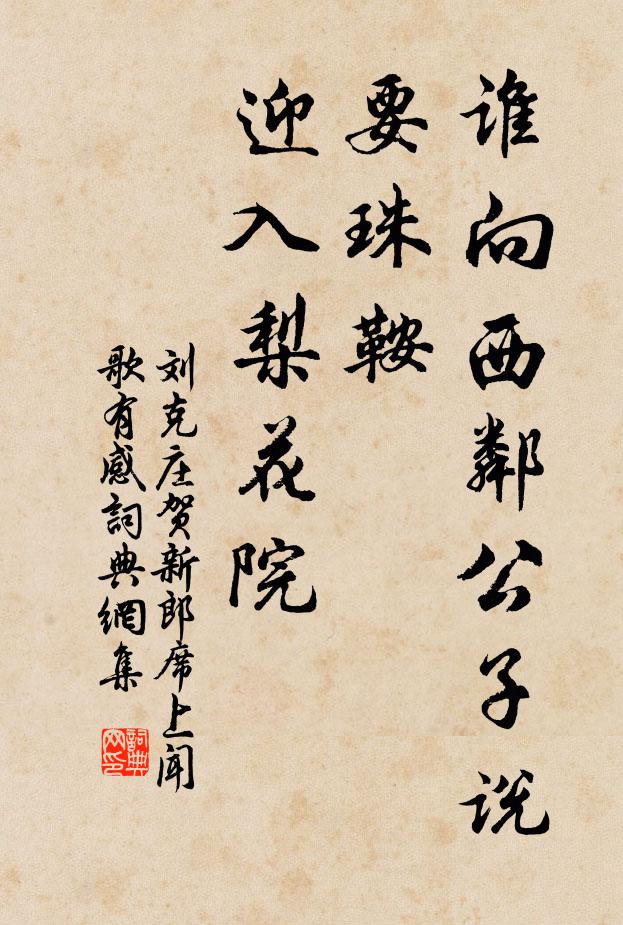 谁向西鄰公子说
要珠鞍
迎入梨花院
刘克庄贺新郎席上闻
歌有感詞典網集
詞典
网印